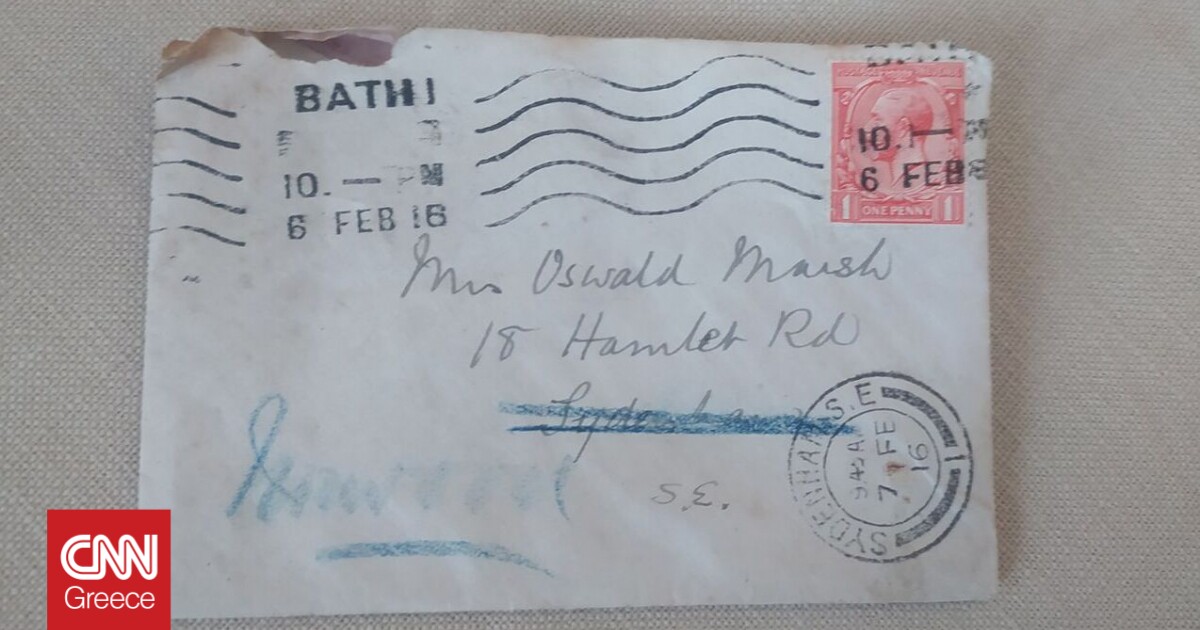 BATH 1
10. — PM
6 FEB 16
10.
6 FEB
1 ONE PENNY 1
Mrs Oswald Marsh
18 Hamlet Rd
Sydenham
S.E.
SYDENHAM S.E
945 A
7 FE
16
1
CNN
Greece